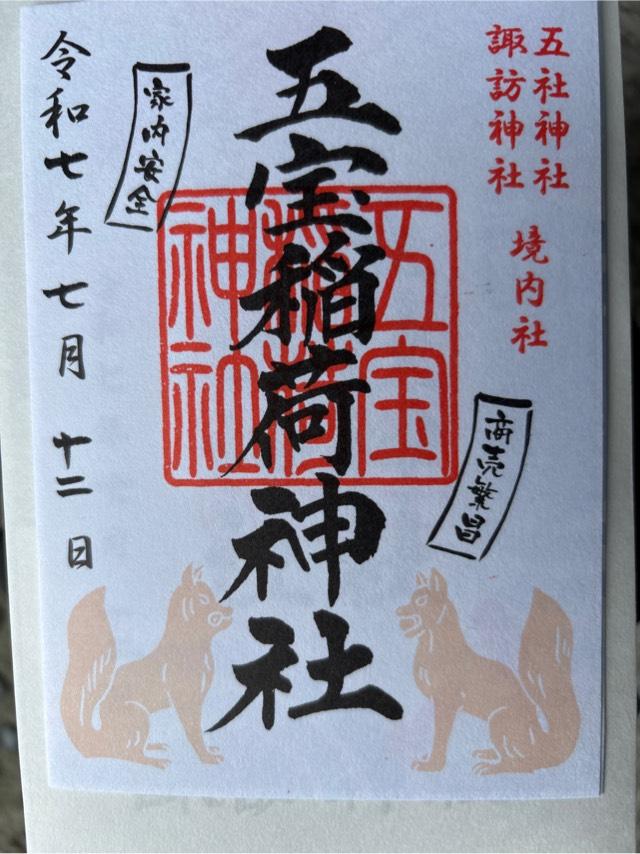 五社神社
諏訪神社
境内社
商売繁昌
五宝稲荷神社
五宝
稲荷
神社
家内安全
令和七年七月十二日